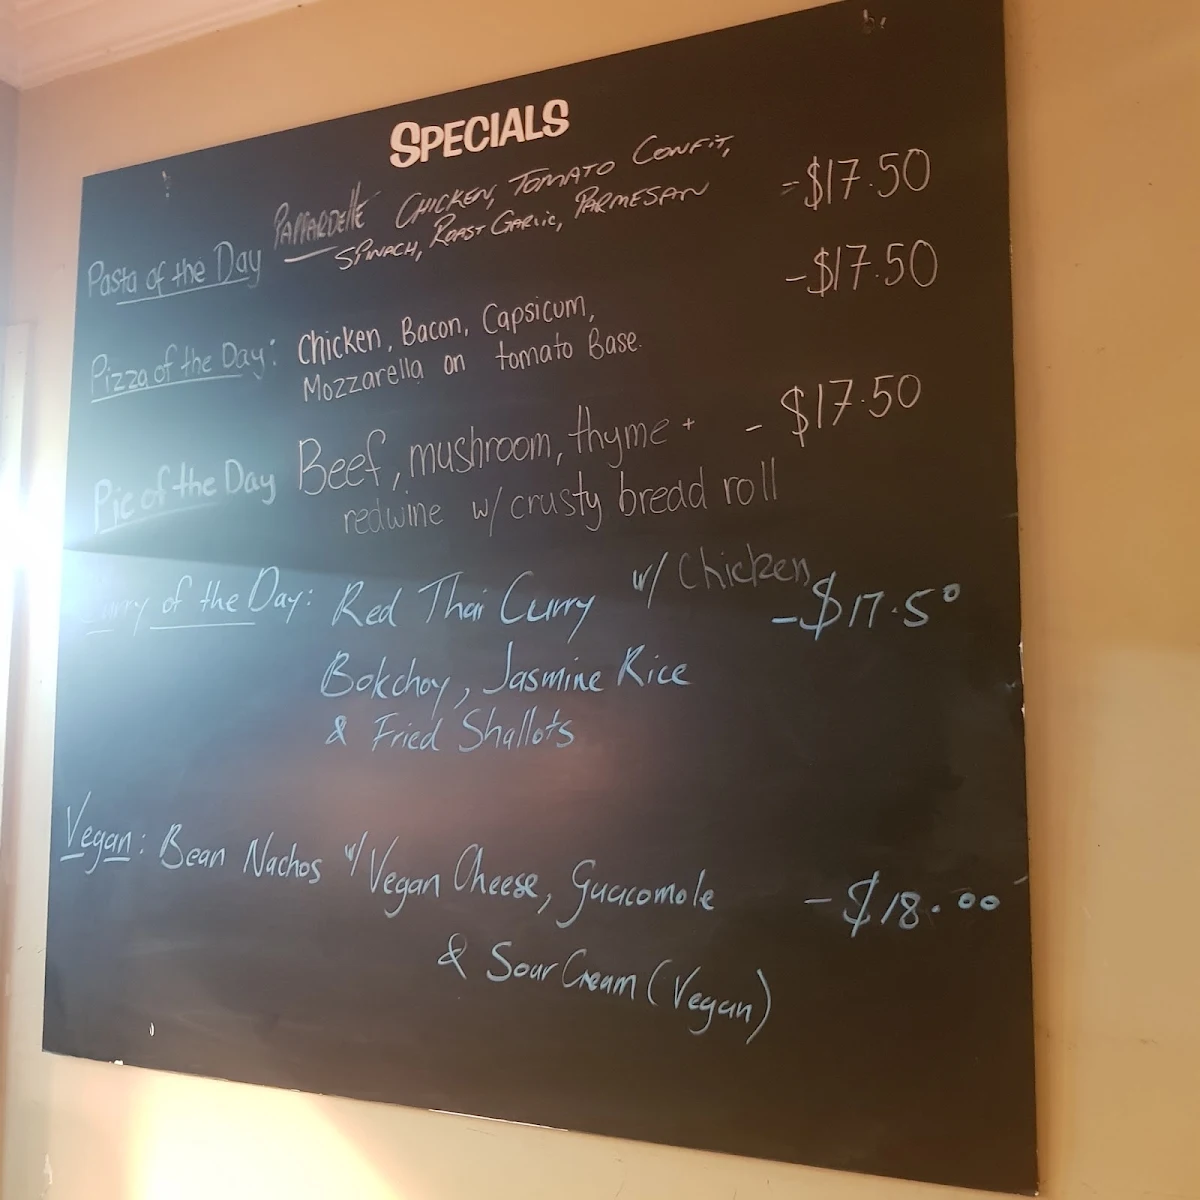 SPECIALS
Pasta of the Day PAPPARDELLE CHICKEN, TOMATO CONFIT, -$17.50
SPINACH, ROAST GARLIC, PARMESAN
Pizza of the Day: Chicken, Bacon, Capsicum, -$17.50
Mozzarella on tomato Base.
Pie of the Day Beef, mushroom, thyme + - $17.50
redwine w/ crusty bread roll
Curry of the Day: Red Thai Curry w/ Chicken, -$17.50
Bokchoy, Jasmine Rice
& Fried Shallots
Vegan: Bean Nachos w/ Vegan Cheese, Guacomole -$18.00
& Sour Cream (Vegan)